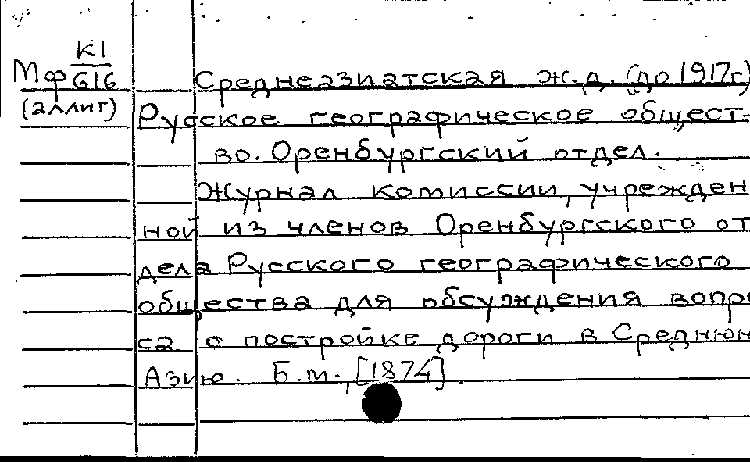 К1
Мф G16
(аллиг)
Среднеазиатская ж.д. (до 1917г)
Русское географическое общест-
во. Оренбургский отдел.
Журнал комиссии, учрежден
ной из членов Оренбургского от
дела Русского географического
общества для обсуждения вопро
са о постройке дороги в Среднюю
Азию. Б.м., [1874].